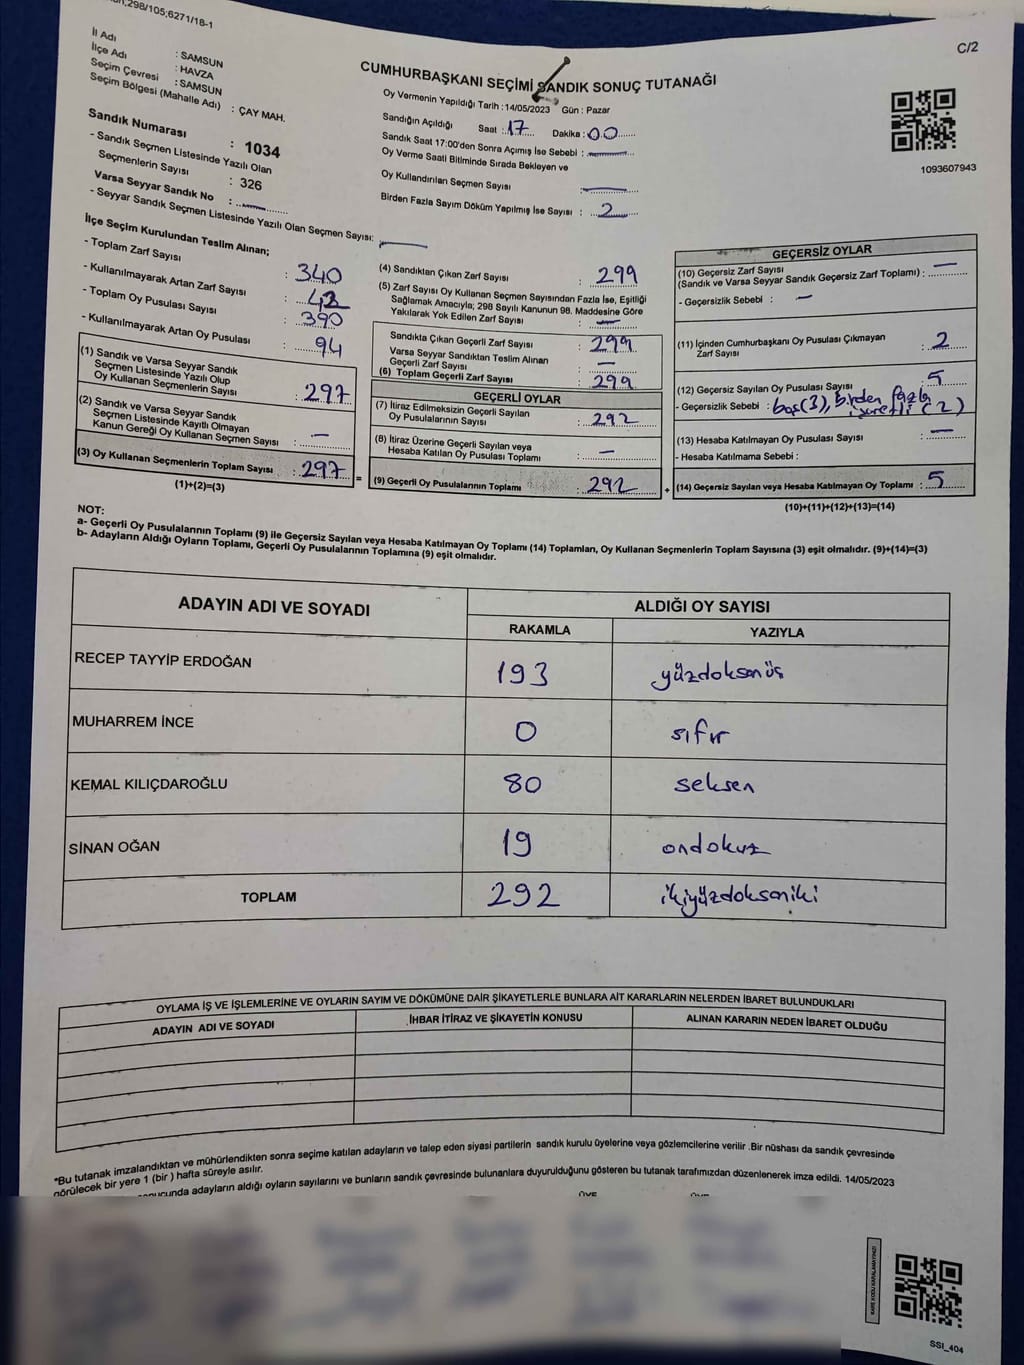 298/105;6271/18-1
C/2
İl Adı : SAMSUN
İlçe Adı : HAVZA
Seçim Çevresi : SAMSUN
Seçim Bölgesi (Mahalle Adı) : ÇAY MAH.
Sandık Numarası : 1034
- Sandık Seçmen Listesinde Yazılı Olan
Seçmenlerin Sayısı : 326
Varsa Seyyar Sandık No :
- Seyyar Sandık Seçmen Listesinde Yazılı Olan Seçmen Sayısı:
CUMHURBAŞKANI SEÇİMİ SANDIK SONUÇ TUTANAĞI
Oy Vermenin Yapıldığı Tarih : 14/05/2023 Gün : Pazar
Sandığın Açıldığı Saat : 17 Dakika : 00
Sandık Saat 17:00'den Sonra Açımış İse Sebebi :
Oy Verme Saati Bitiminde Sırada Bekleyen ve
Oy Kullandırılan Seçmen Sayısı :
Birden Fazla Sayım Döküm Yapılmış İse Sayısı : 2
1093607943
İlçe Seçim Kurulundan Teslim Alınan;
- Toplam Zarf Sayısı : 340
- Kullanılmayarak Artan Zarf Sayısı :
- Toplam Oy Pusulası Sayısı : 390
- Kullanılmayarak Artan Oy Pusulası : 94
(1) Sandık ve Varsa Seyyar Sandık
Seçmen Listesinde Yazılı Olup
Oy Kullanan Seçmenlerin Sayısı : 297
(2) Sandık ve Varsa Seyyar Sandık
Seçmen Listesinde Kayıtlı Olmayan
Kanun Gereği Oy Kullanan Seçmen Sayısı : —
(3) Oy Kullanan Seçmenlerin Toplam Sayısı : 297
(1)+(2)=(3)
(4) Sandıktan Çıkan Zarf Sayısı : 299
(5) Zarf Sayısı Oy Kullanan Seçmen Sayısından Fazla İse, Eşitliği
Sağlamak Amacıyla; 298 Sayılı Kanunun 98. Maddesine Göre
Yakılarak Yok Edilen Zarf Sayısı : —
Sandıkta Çıkan Geçerli Zarf Sayısı : 299
Varsa Seyyar Sandıktan Teslim Alınan
Geçerli Zarf Sayısı : —
(6) Toplam Geçerli Zarf Sayısı : 299
GEÇERLİ OYLAR
(7) İtiraz Edilmeksizin Geçerli Sayılan
Oy Pusulalarının Sayısı : 292
(8) İtiraz Üzerine Geçerli Sayılan veya
Hesaba Katılan Oy Pusulası Toplamı : —
(9) Geçerli Oy Pusulalarının Toplamı : 292
GEÇERSİZ OYLAR
(10) Geçersiz Zarf Sayısı
(Sandık ve Varsa Seyyar Sandık Geçersiz Zarf Toplamı) : —
- Geçersizlik Sebebi : —
(11) İçinden Cumhurbaşkanı Oy Pusulası Çıkmayan
Zarf Sayısı : 2
(12) Geçersiz Sayılan Oy Pusulası Sayısı : 5
- Geçersizlik Sebebi : boş(3), birden fazla
işaretli (2)
(13) Hesaba Katılmayan Oy Pusulası Sayısı : —
- Hesaba Katılmama Sebebi :
(14) Geçersiz Sayılan veya Hesaba Katılmayan Oy Toplamı : 5
(10)+(11)+(12)+(13)=(14)
NOT:
a- Geçerli Oy Pusulalarının Toplamı (9) ile Geçersiz Sayılan veya Hesaba Katılmayan Oy Toplamı (14) Toplamları, Oy Kullanan Seçmenlerin Toplam Sayısına (3) eşit olmalıdır. (9)+(14)=(3)
b- Adayların Aldığı Oyların Toplamı, Geçerli Oy Pusulalarının Toplamına (9) eşit olmalıdır.
ADAYIN ADI VE SOYADI ALDIĞI OY SAYISI
RAKAMLA YAZIYLA
RECEP TAYYİP ERDOĞAN 193 yüzdoksanüç
MUHARREM İNCE 0 sıfır
KEMAL KILIÇDAROĞLU 80 seksen
SİNAN OĞAN 19 ondokuz
TOPLAM 292 ikiyüzdoksaniki
OYLAMA İŞ VE İŞLEMLERİNE VE OYLARIN SAYIM VE DÖKÜMÜNE DAİR ŞİKAYETLERLE BUNLARA AİT KARARLARIN NELERDEN İBARET BULUNDUKLARI
ADAYIN ADI VE SOYADI İHBAR İTİRAZ VE ŞİKAYETİN KONUSU ALINAN KARARIN NEDEN İBARET OLDUĞU
*Bu tutanak imzalandıktan ve mühürlendikten sonra seçime katılan adayların ve talep eden siyasi partilerin sandık kurulu üyelerine veya gözlemcilerine verilir .Bir nüshası da sandık çevresinde
görülecek bir yere 1 (bir ) hafta süreyle asılır.
sonucunda adayların aldığı oyların sayılarını ve bunların sandık çevresinde bulunanlara duyurulduğunu gösteren bu tutanak tarafımızdan düzenlenerek imza edildi. 14/05/2023
SSI_404